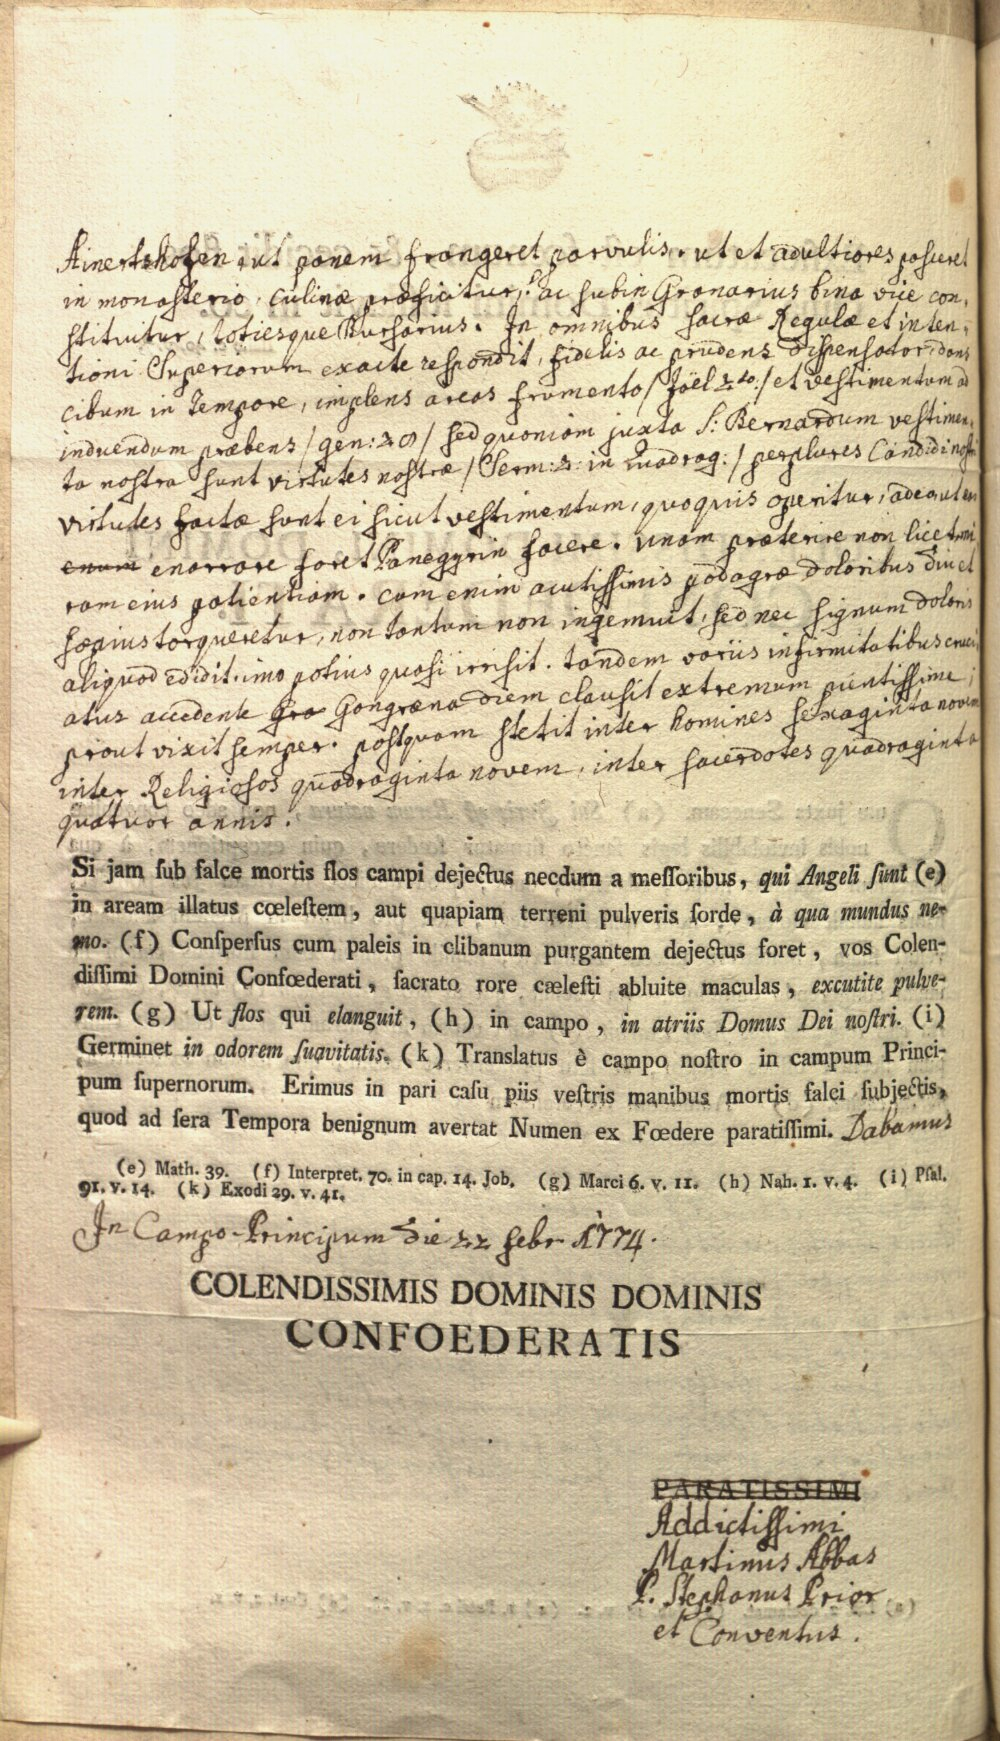 Ainertshofen, ut panem frangeret parvulis. ut et adultiores pasceret
in monasterio, culinæ præficitur, ac subin Granarius bina vice con-
stituitur, totiesque Bursarius. In omnibus sacræ Regulæ et inten-
tioni Superiorum exacte respondit, fidelis ac prudens dispensator, dans
cibum in tempore, implens areas frumento / Joël 2do: / et vestimentum ad
induendum præbens / gen: 28 / sed quoniam juxta S: Bernardum vestimen-
ta nostra sunt virtutes nostræ / Serm: 2: in Quadrag: / perplures Candidi nostri
virtutes factæ sunt ei sicut vestimentum, quo quis operitur, adeo ut eas
enum enarrare foret Panegyrin facere. unam præterire non licet mi-
ram eius patientiam. cum enim acutissimis podagræ doloribus diu et
sæpius torqueretur, non tantum non ingemuit, sed nec signum doloris
aliquod edidit. imo potius quasi irrisit. tandem variis infirmitatibus cruci-
atus accedente Gra Gangræna diem clausit extremum pientissime,
prout vixit semper. postquam stetit inter homines sexaginta novem
inter Religiosos quadraginta novem, inter sacerdotes quadraginta
quatuor annis.
Si jam ſub falce mortis flos campi dejectus necdum a meſſoribus, qui Angeli ſunt (e)
in aream illatus cœleſtem, aut quapiam terreni pulveris ſorde, à qua mundus ne-
mo. (f) Conſperſus cum paleis in clibanum purgantem dejectus foret, vos Colen-
diſſimi Domini Confœderati, ſacrato rore cæleſti abluite maculas, excutite pulve-
rem. (g) Ut flos qui elanguit, (h) in campo, in atriis Domus Dei noſtri. (i)
Germinet in odorem ſuavitatis. (k) Translatus è campo noſtro in campum Princi-
pum ſupernorum. Erimus in pari caſu piis veſtris manibus mortis falci ſubjectis,
quod ad ſera Tempora benignum avertat Numen ex Fœdere paratiſſimi. Dabamus
(e) Math. 39. (f) Interpret. 70. in cap. 14. Job. (g) Marci 6. v. 11. (h) Nah. 1. v. 4. (i) Pſal.
91. v. 14. (k) Exodi 29. v. 41.
In Campo-Principum die 22 febr 1774.
COLENDISSIMIS DOMINIS DOMINIS
CONFOEDERATIS
PARATISSIMI
Addictissimi
Martinus Abbas
P. Stephanus Prior
et Conventus.